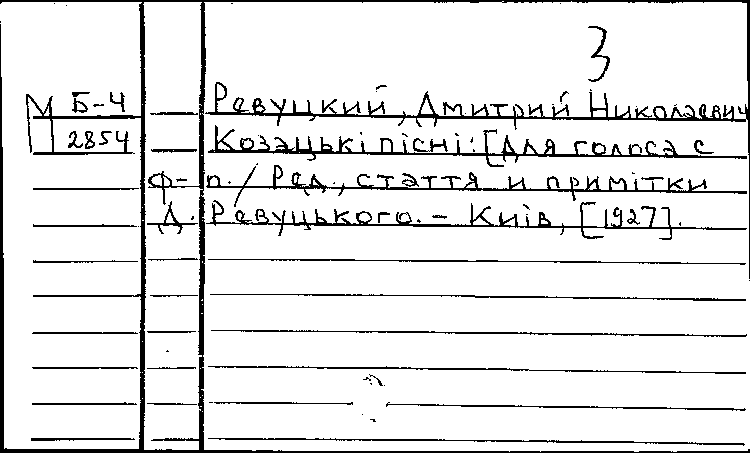 3
М Б-4 Ревуцкий, Дмитрий Николаевич
2854 Козацькі пісні: [Для голоса с
ф-п. / Ред., стаття и примітки
Д. Ревуцького. - Київ, [1927].